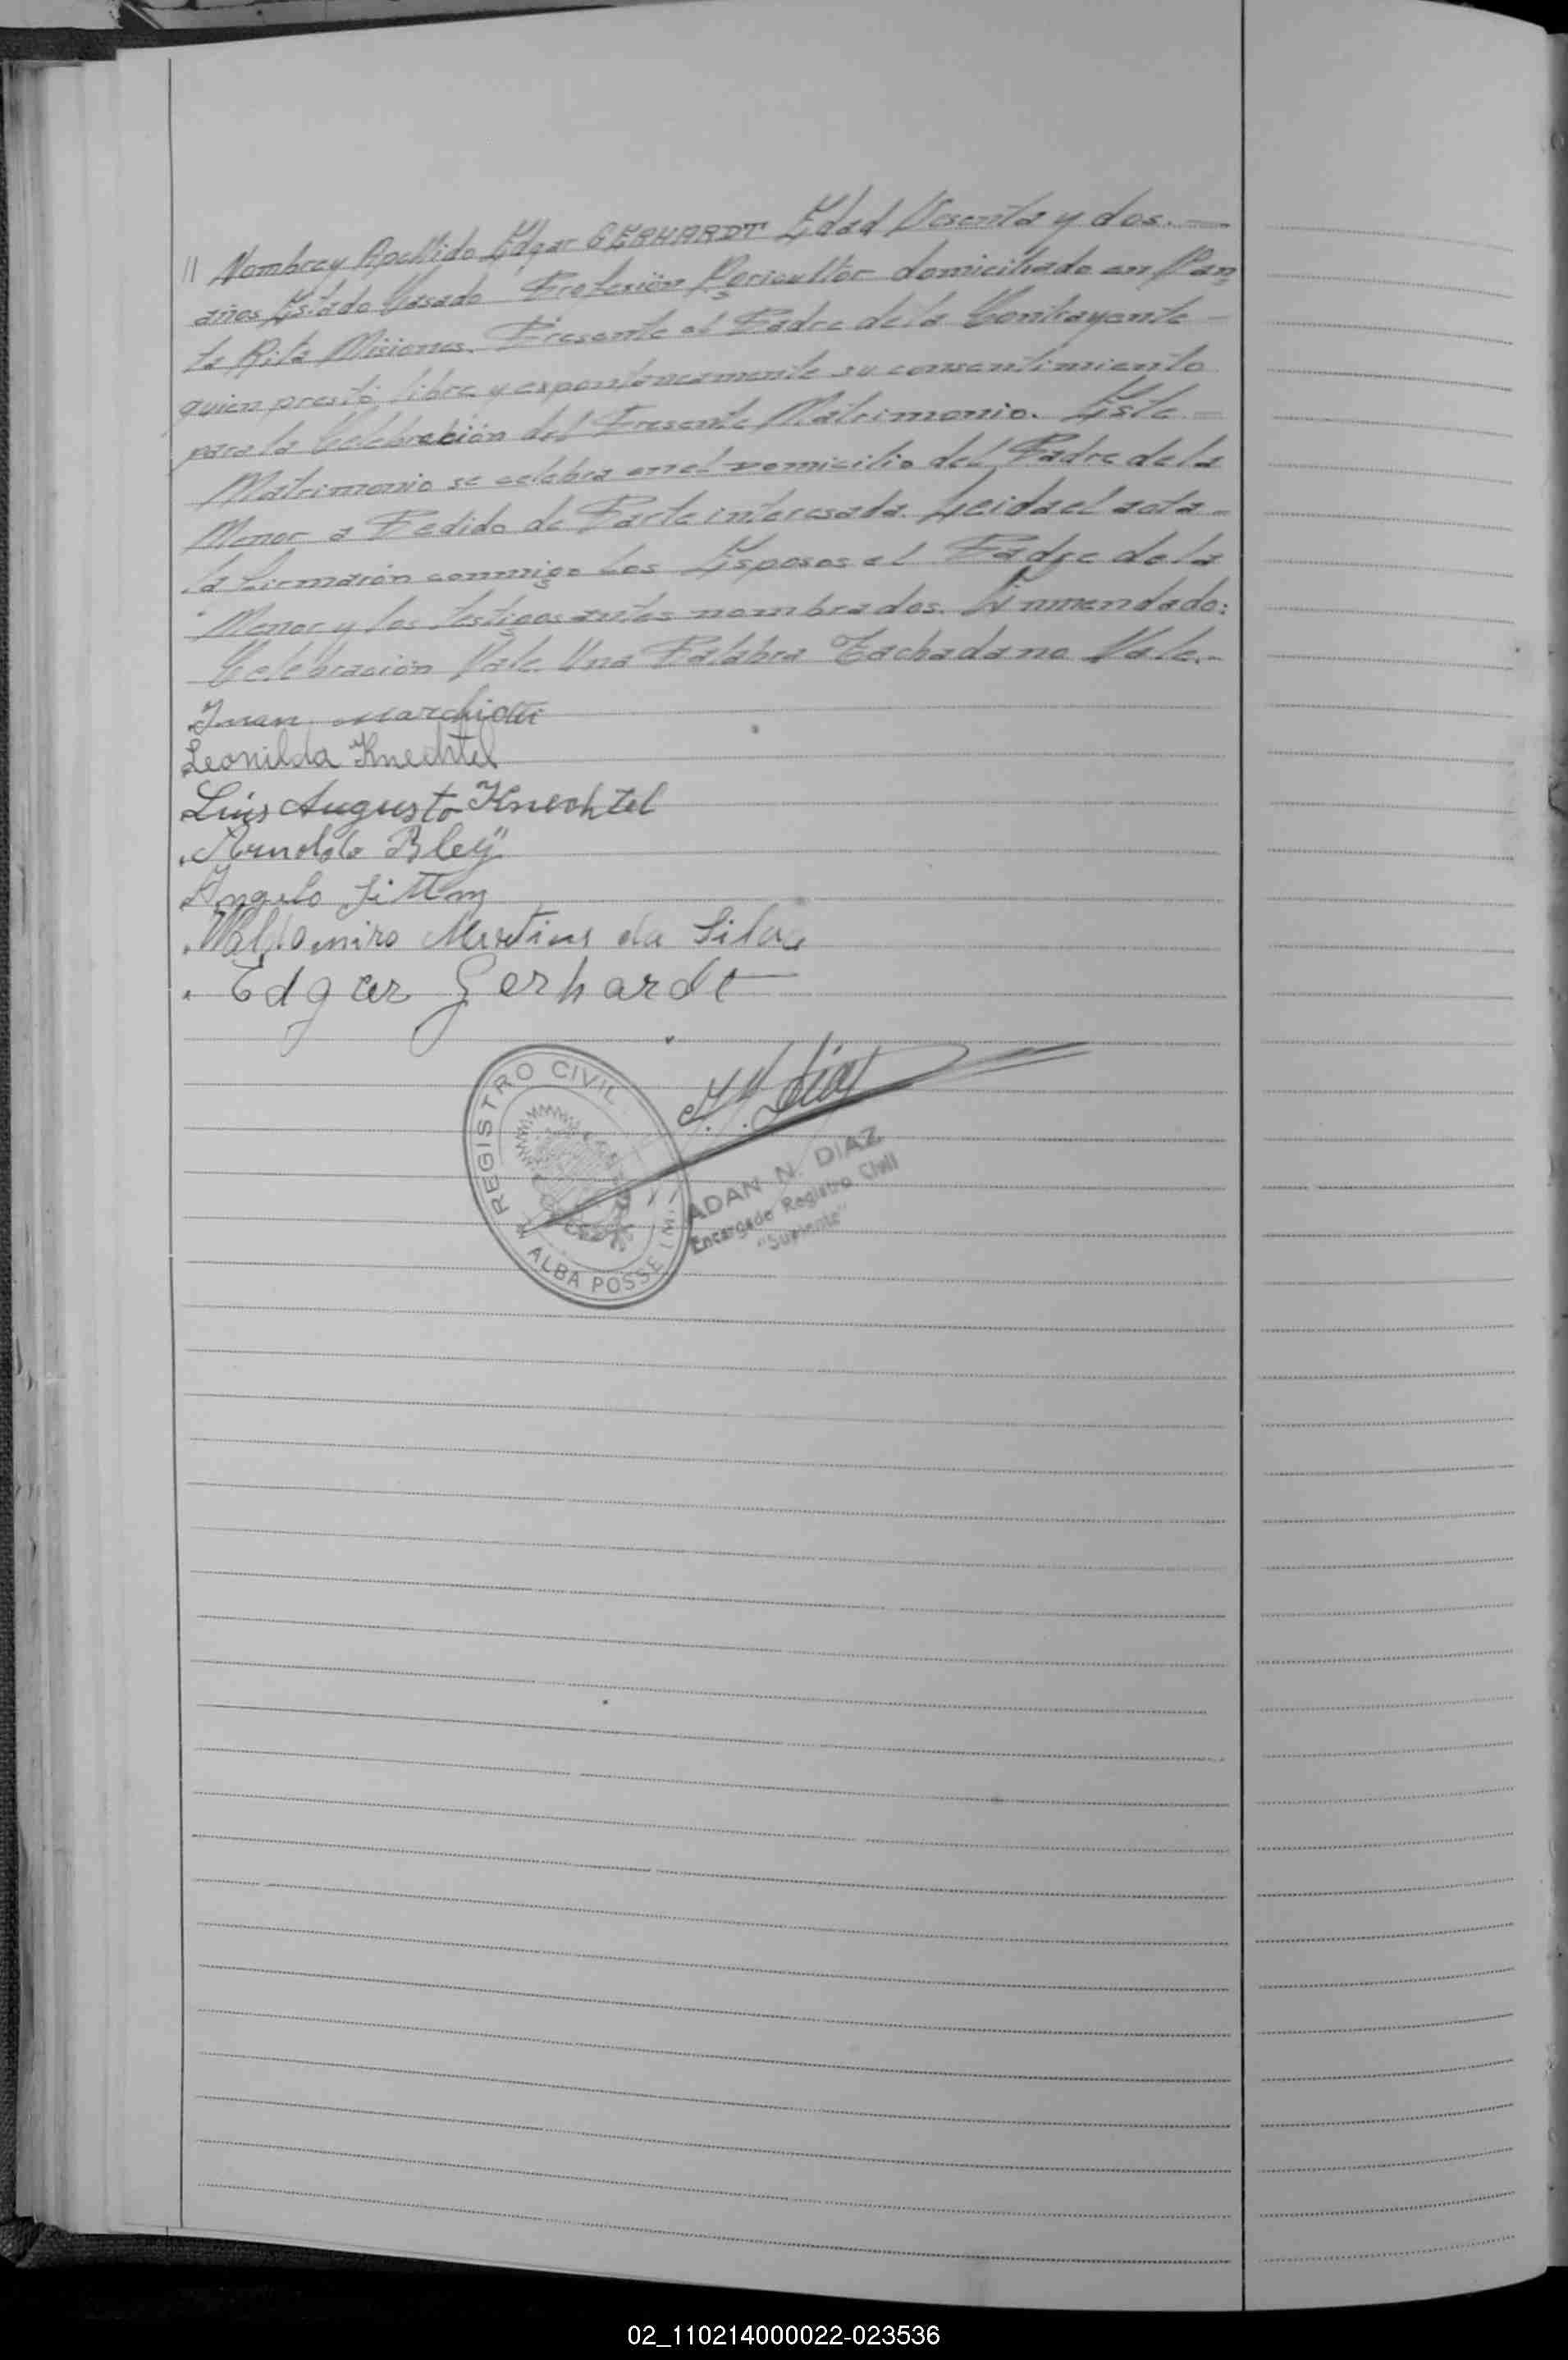 // Nombre y Apellido Edgar GERHARDT Edad Sesenta y dos.—
años Estado Casado Profesión Agricultor domiciliado en San
ta Rita Misiones. Presente el Padre de la Contrayente —
quien prestó libre y espontáneamente su consentimiento
para la Celebración del Presente Matrimonio. Este —
Matrimonio se celebra en el domicilio del Padre de la
Menor a Pedido de Parte interesada. Leida el acta -
la Firmarón conmigo Los Esposos el Padre de la
Menor y los testigos antes nombrados. Enmendado:
Celebración Vale. Una Palabra Tachada no Vale.-
Juan
Leonilda Knechtel
Luis Augusto Knechtel
Arnoldo Bley
Angelo
Waldomiro Martins da Silva
Edgar Gerhardt
REGISTRO CIVIL
ALBA POSSE (M.)
ADAN N. DIAZ
Encargado Registro Civil
"Suplente"
02_110214000022-023536